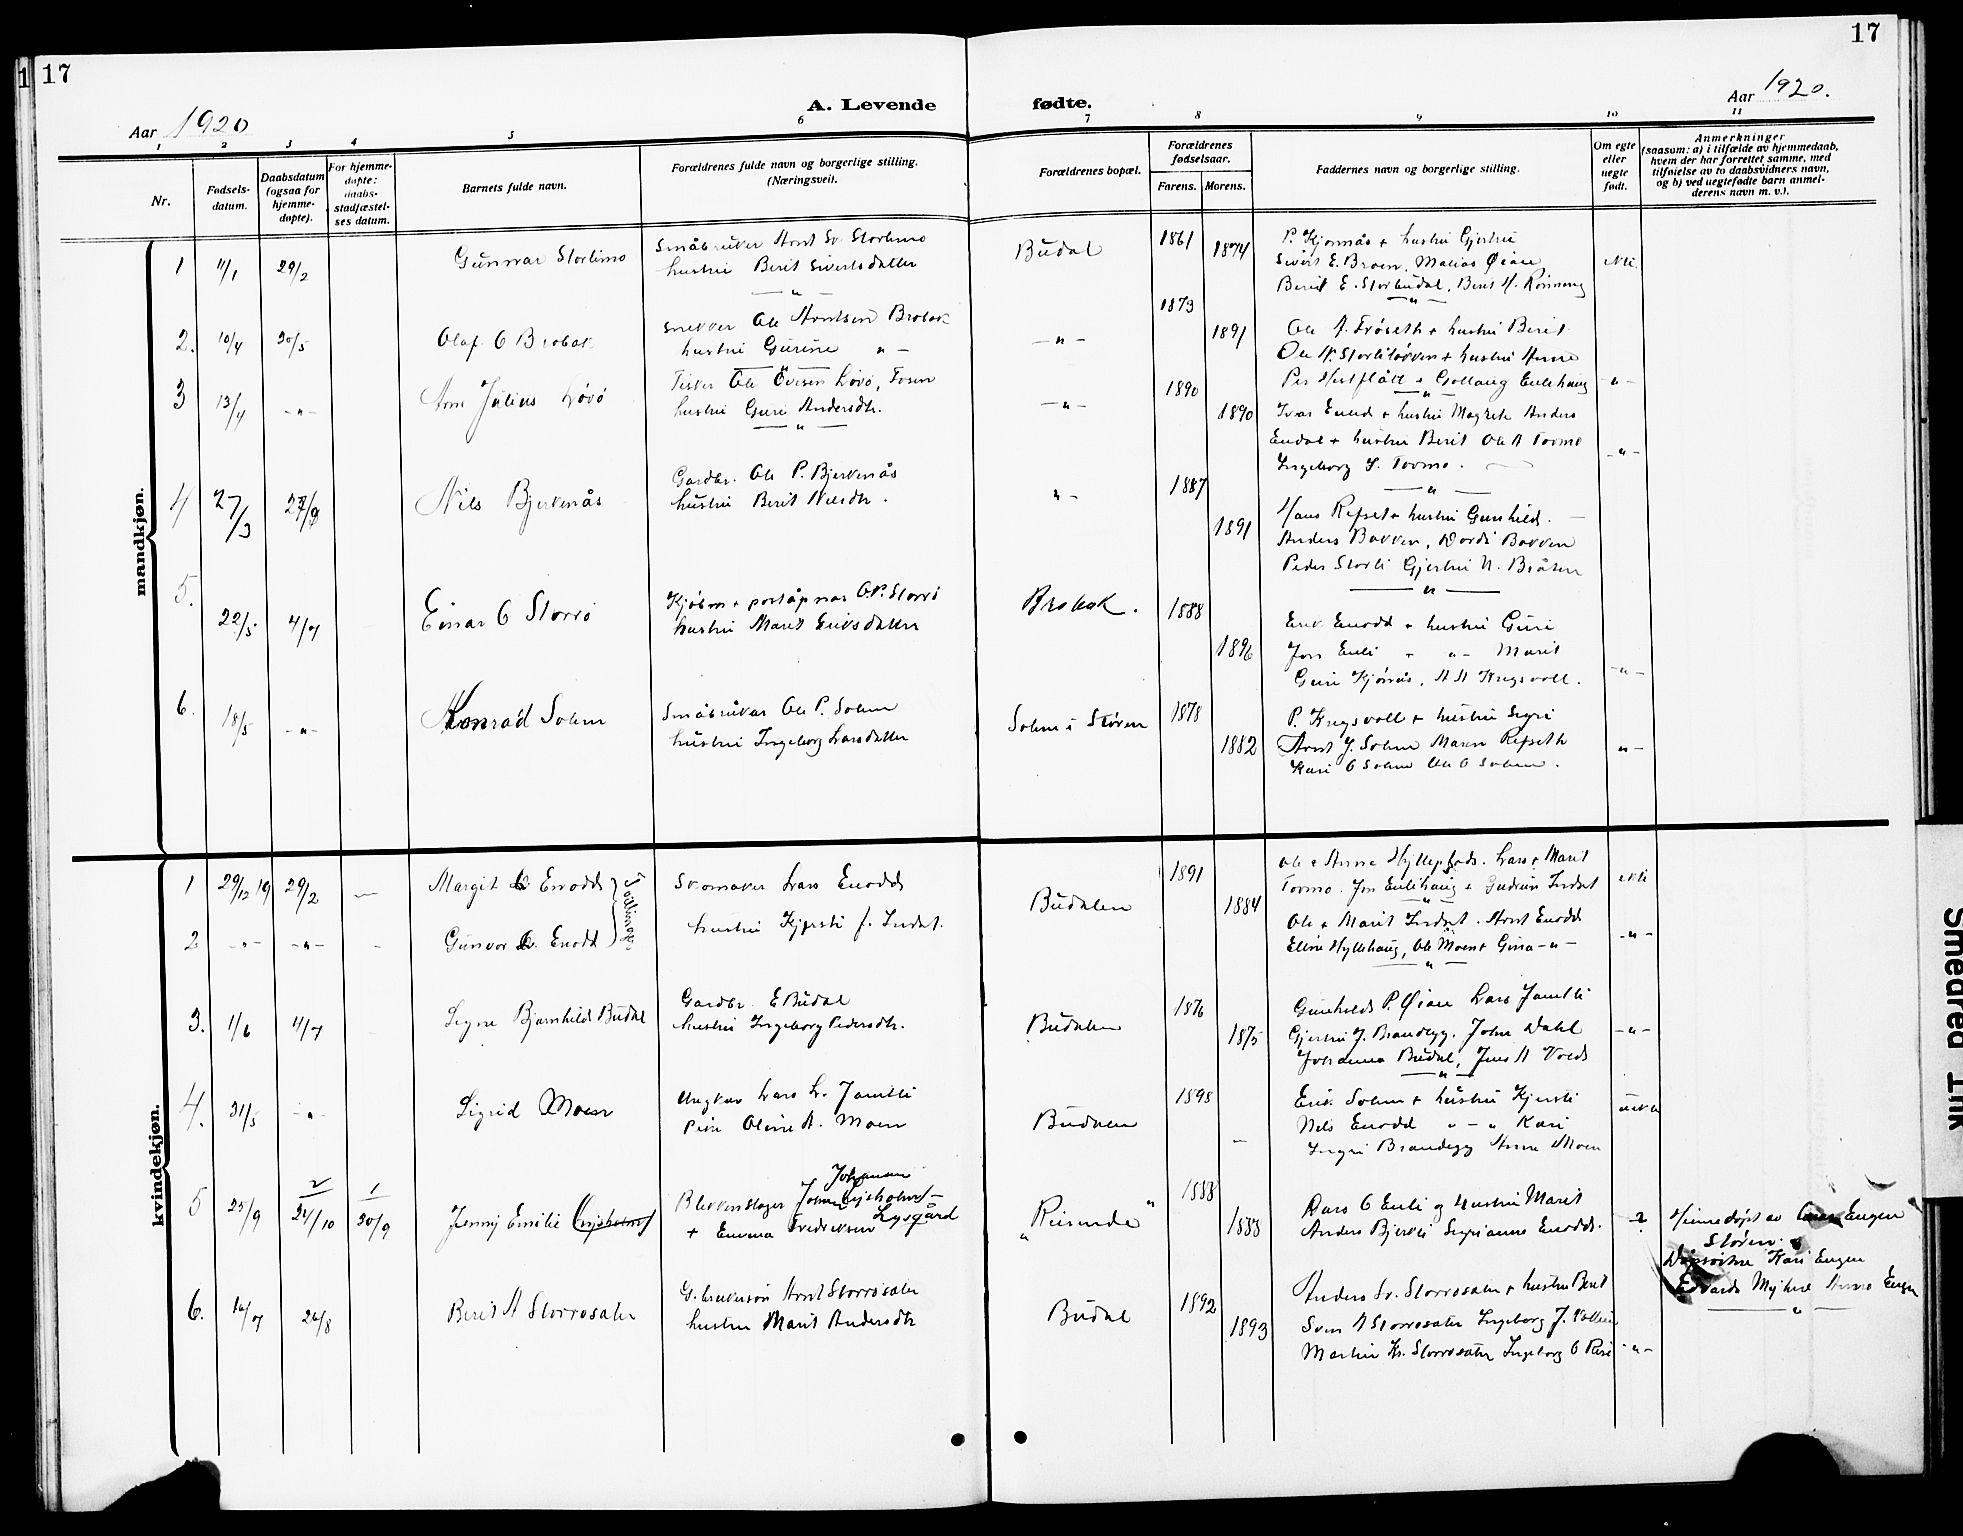 17
17
Aar 1920
A. Levende fødte.
Aar 1920.
1 2 3 4 5 6 7 8 9 10 11
Nr.
Fødsels-
datum.
Daabsdatum
(ogsaa for
hjemme-
døpte).
For hjemme-
døpte:
daabs-
stadfæstel-
ses datum.
Barnets fulde navn.
Forældrenes fulde navn og borgerlige stilling.
(Næringsvei).
Forældrenes bopæl.
Forældrenes
fødselsaar.
Farens. Morens.
Faddernes navn og borgerlige stilling.
Om egte
eller
uegte
født.
Anmerkninger
(saasom: a) i tilfælde av hjemmedaab,
hvem der har forrettet samme, med
tilføielse av to daabsvidners navn,
og b) ved uegtefødte barn anmel-
derens navn m. v.).
mandkjøn.
1 11/1 29/2 Gunnar Storlimo
Småbruker Arnt Sv. Storlimo
hustru Berit Sivertsdatter
Budal 1861 1874
P. Kjønnås + hustru Gjertru
Sivert E. Broen, Matias Øian
Berit E. Storbudal, Berit H. Rønning
2. 10/4 30/5 Olaf O Brobak
Snekker Ole Arntsen Brobak
hustru Gurine " -
- " - 1873 1891
Ole A. Frøseth + hustru Berit
Ole N. Storliløkken + hustru Anne
Per Hestflått + Gollaug Enlihaug - " -
3 13/4 - " - Arne Julius Løvø
Fisker Ole Øvesen Løvø, Fosen
hustru Guri Andersdtr.
- " - 1890 1890
Ivar Enlid + hustru Magrete Anders
Endal + hustru Berit Ole A Tovmo
Ingeborg S. Tovmo. - " -
4 27/3 Nils Bjerkenås
Gardbr. Ole P. Bjerkenås
hustru Berit Nilsdtr.
" - 1887 1891
Hans Refset + hustru Gunhild.
Anders Bakken, Dordi Bakken
Peder Storli Gjertru N. Bråten
5. 22/5 4/7 Einar O Storrø
Kjøbm + poståpner O.P. Storrø
hustru Marit Eriksdatter
Brobak. 1888 1896
Erik Enodd + hustru Guri
Jon Enli + " - Marit
Guri Kjønås, A A Krigsvoll. - " -
6. 18/5 - " - Konrad Solem
Småbruker Ole P. Solem
hustru Ingeborg Larsdatter
Solem i Støren 1878 1882
P. Krigsvoll + hustru Sigri
Arnt J. Solem Maren Refseth
Kari O Solem Ole O Solem. " -
kvindekjøn.
1 29/12 19 29/2 - Margit L Enodd
Skomaker Lars Enodd
hustru Kjersti f. Indset.
Budalen 1891 1884
Ole + Anne Hyllepfads. Lars + Marit
Tovmo. Jon Enlihaug + Gudrun Indset ekte
2 - " - - " - - Gunvor L. Enodd
Tvillinger
Ole + Marit Indset. Arnt Enodd
Ellen Hyllehaug, Ole Moen + Gina - " - - " -
3. 1/6 4/7 Signe Bjørnhild Budal
Gardbr. E Budal
hustru Ingeborg Pedersdtr.
Budalen 1876 1875
Gunhild P. Øian Lars Jamtli
Gjertru J. Brandegg. John Dahl - " -
Johanna Budal, Jens A Vold
4. 31/5 - " - Sigrid Moen
Ungkar Lars L. Jamtli
Pike Oline A. Moen
Budalen 1898 -
Erik Solem + hustru Kjersti
Nils Enodd " - " Kari
Ingri Brandegg Anne Moen uekte
5 25/9 2 24/10 1 30/9 Jenny Emilie
Blikkenslager Johan
+ Emma Fredriksen Lysgård
"Risende" 1888 1888
Lars O Enli og hustru Marit
Anders Bjerkli Sigrianne Enodd.
Hjemmedøpt av Engen
Støren.
Kari Engen
Edvard Myhre Anna Engen
6. 16/7 26/8 Berit A Storrøsæter
G. brukersøn Arnt Storrøsæter
hustru Marit Andersdtr
Budal 1892 1893
Anders Sv. Storrøsæter + hustru Berit
Sven A Storrøsæter Ingeborg J. Vollan
Martin Kr. Storrøsæter Ingeborg O Rise - " -
Smeared Ink